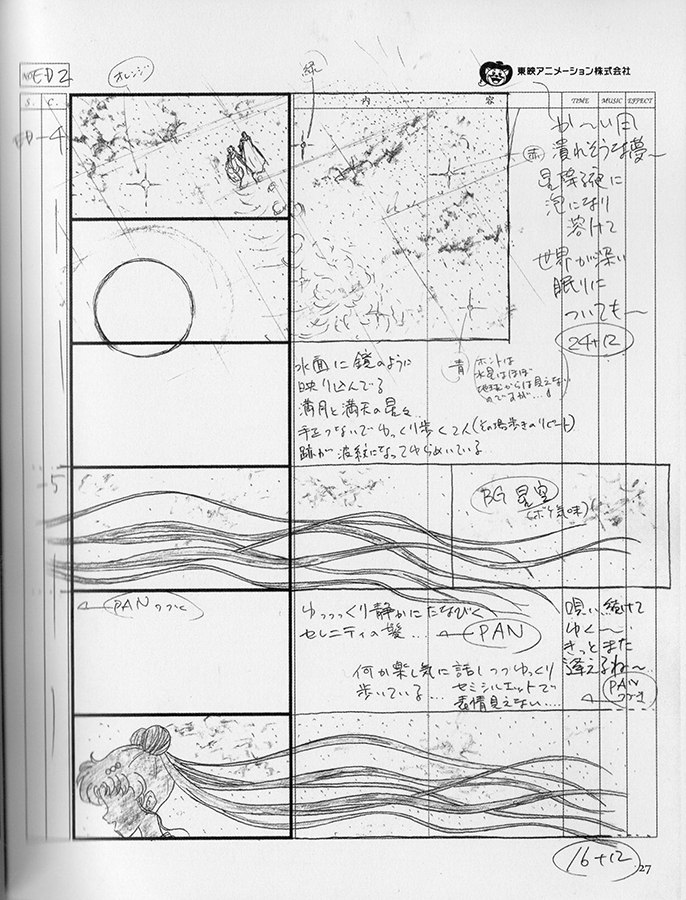 ED2
オレンジ
緑
東映アニメーション株式会社
S.
C.
内
容
TIME
MUSIC
EFFECT
ED
4
赤
か〜い月
潰れそうな夢〜
星降る夜に
泡になり
溶けて
世界が深い
眠りに
ついても〜
24+12
青
ホントは
水星はほぼ
地球からは見えない
のですが…
水面に鏡のように
映り込んでる
満月と満天の星々
手をつないでゆっくり歩く2人(その場歩きのリピート)
跡が波紋になってゆらめいている
5
BG 星空
(ボケ気味)
PANつづく
ゆっっっくり静かにたなびく
セレニティの髪…
PAN
唄い続けて
ゆく〜
きっとまた
逢えるね〜
何か楽し気に話しつつゆっくり
歩いている…
セミシルエットで
表情見えない…
PAN
つづき
16+12
27